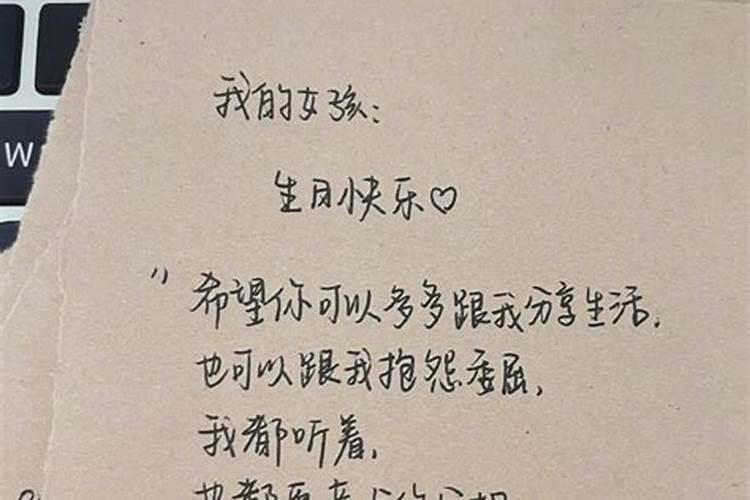 W
我的女孩:
生日快乐♡
"希望你可以多多跟我分享生活,
也可以跟我抱怨委屈,
我都听着,
也都